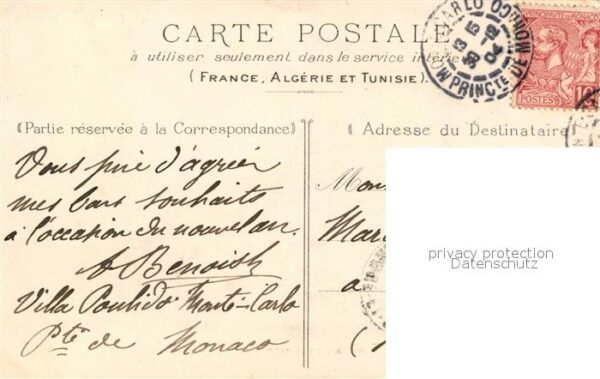 CARTE POSTALE
à utiliser seulement dans le service intérie
(FRANCE, ALGÉRIE ET TUNISIE).
MONTE CARLO
13 15
30-12
04
PRINCTE DE MONACO
PRINCIPAUTÉ DE MONACO
POSTES 10
(Partie réservée à la Correspondance)
Vous prie d'agréer
mes bons souhaits
à l'occasion du nouvel an.
A Benoish
Villa Poulido Monte-Carlo
Pté de Monaco
Adresse du Destinataire
Mons
Mar
a
privacy protection
Datenschutz